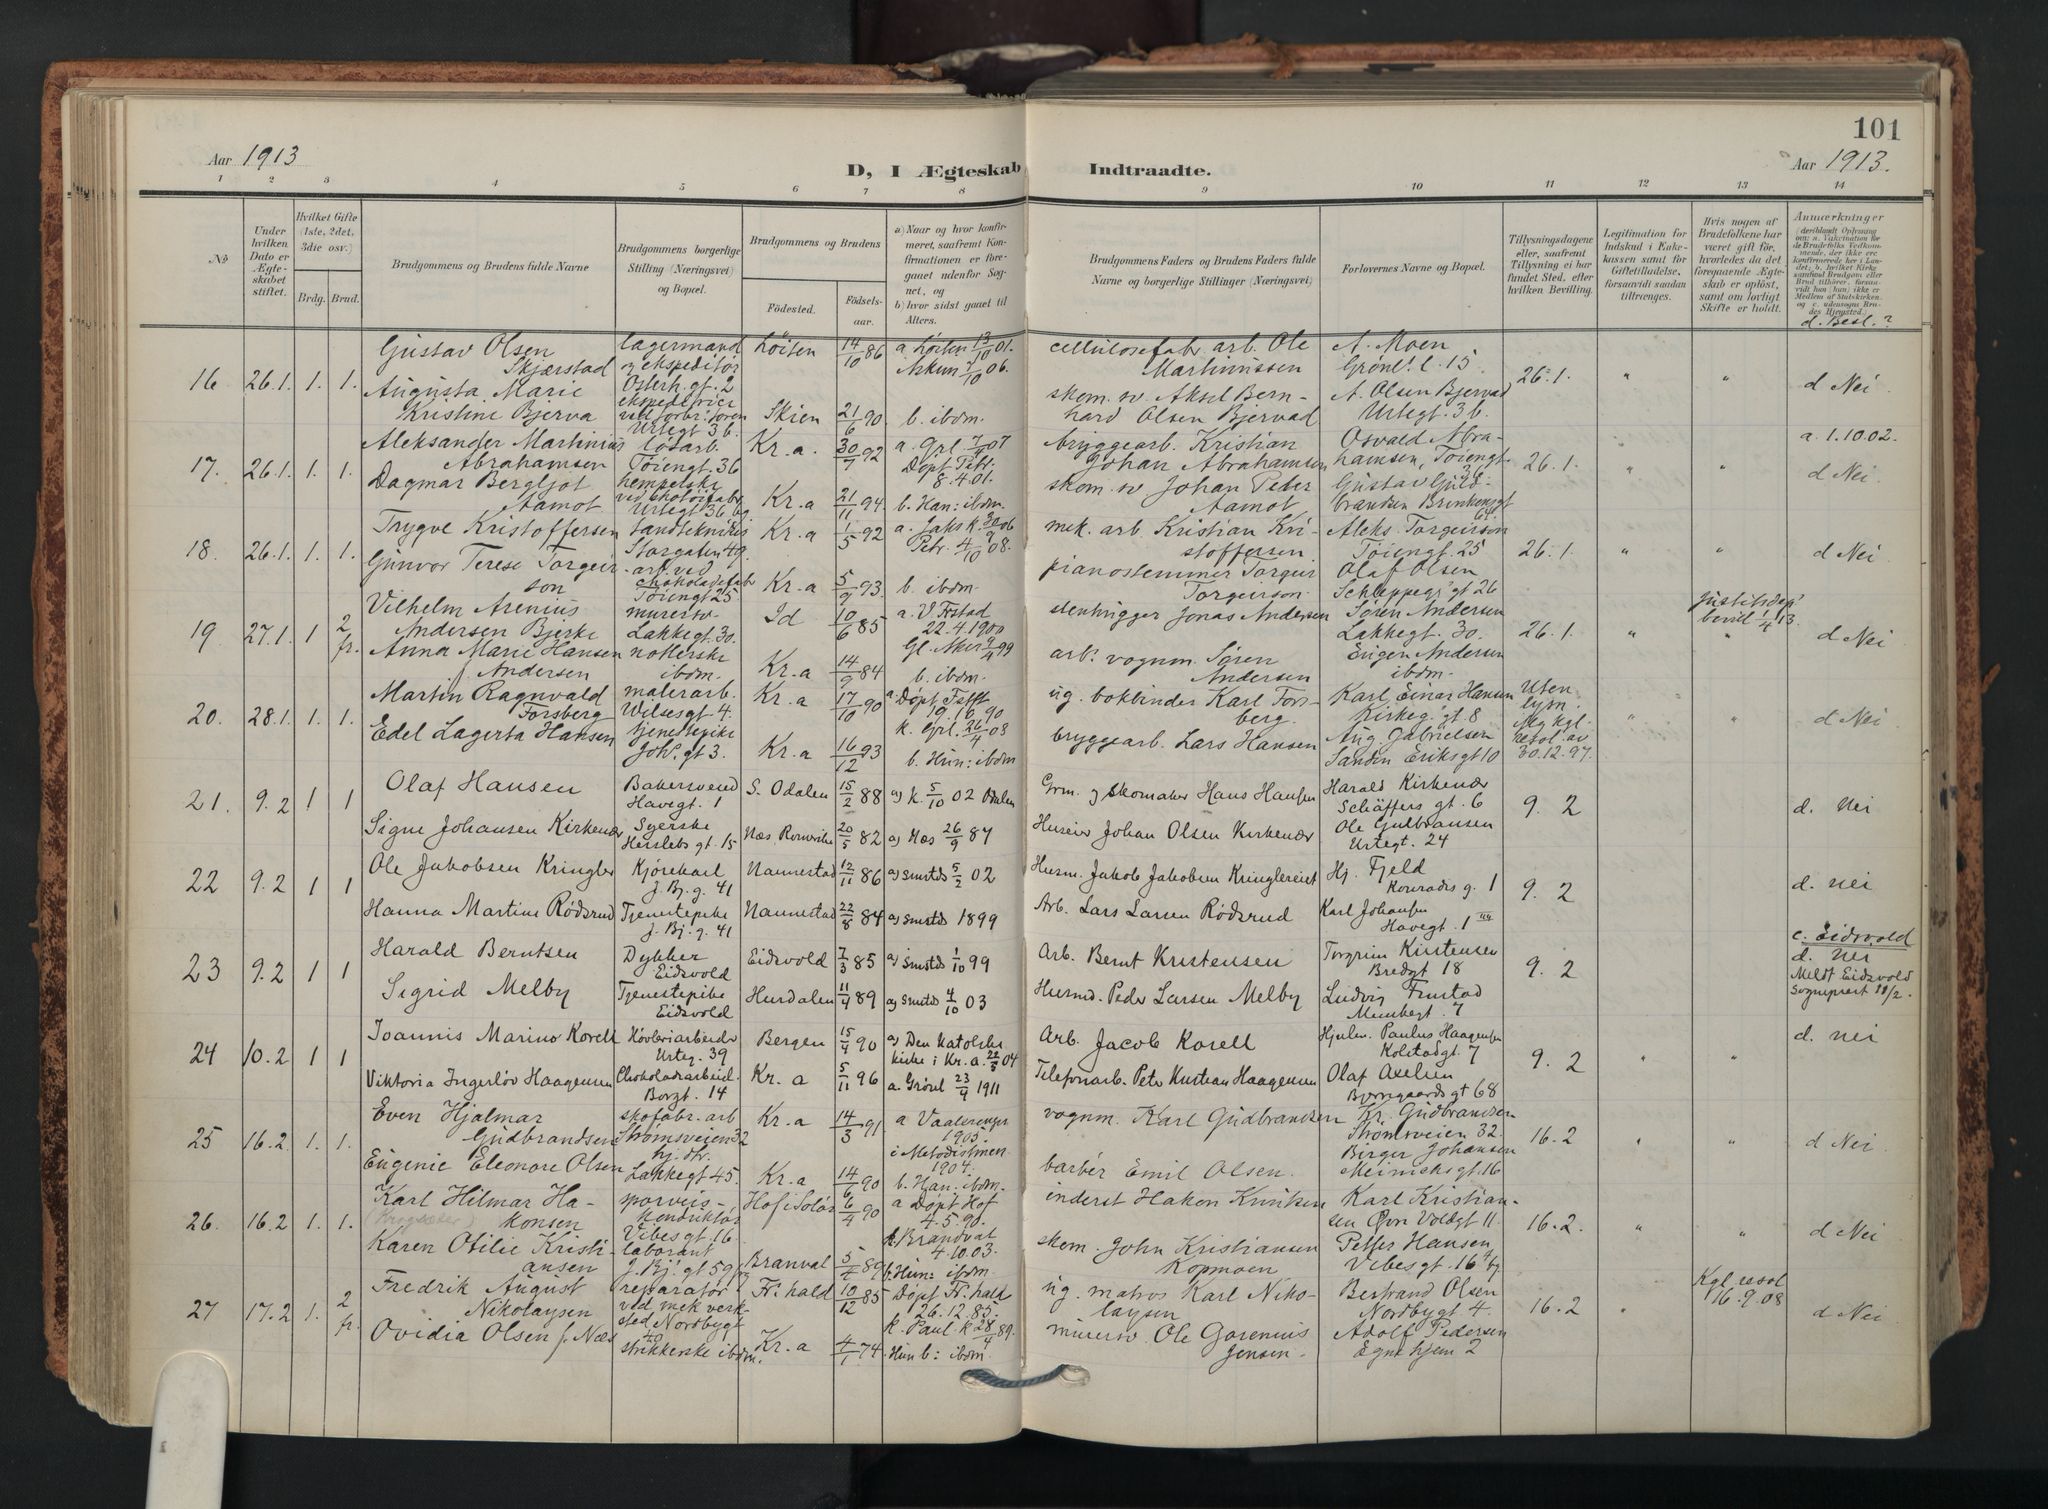 101
Aar 1913
D, I Ægteskab Indtraadte.
Aar 1913.
1 2 3 3 4 5 6 7 8 9 10 11 12 13 14
No
Under hvilken Dato er Ægteskabet stiftet.
Hvilket Gifte (1ste, 2det, 3die osv.)
Brdg. Brud.
Brudgommens og Brudens fulde Navne
Brudgommens borgerlige Stilling (Næringsvei) og Bopæl.
Brudgommens og Brudens
Fødested. Fødselsaar.
a) Naar og hvor konfirmeret, saafremt Konfirmationen er foregaaet udenfor Sognet, og
b) hvor sidst gaaet til Alters.
Brudgommens Faders og Brudens Faders fulde Navne og borgerlige Stillinger (Næringsvei)
Forlovernes Navne og Bopæl.
Tillysningsdagene eller, saafremt Tillysning ei har fundet Sted, efter hvilken Bevilling.
Legitimation for Indskud i Enkekassen samt for Giftetilladelse, forsaavidt saadan tiltrænges.
Hvis nogen af Brudefolkene har været gift før, hvorledes da det foregaaende Ægteskab er opløst, samt om lovligt Skifte er holdt.
Anmerkninger
d. Besl.?
16 26.1. 1. 1.
Gustav Olsen Skjærstad
lagermand og ekspeditør
Osterh.gt. 2
Løiten 14/10 86
a. Løiten 13/10 01.
cellulosefabr. arb. Ole Martinussen
A. Moen
Grønl. l. 15
26.1. " " d Nei
Augusta Marie Kristine Bjerva
Urtegt 36.
Skien 21/6 90
b. ibdm.
skom. sv. Aksel Bernhard Olsen Bjervad
A. Olsen Bjervad
Urtegt. 36.
17. 26.1. 1. 1.
Aleksander Martinius Abrahamsen
Tøiengt. 36
Kr.a. 30/7 92
a. Grl. 07
bryggearb. Kristian Johan Abrahamsen
Osvald Abrahamsen, Tøiengt. 36
26.1. " " a. 1.10.02.
d Nei
Dagmar Bergljot Aamot
Urtegt 36
Kr.a 21/11 94.
Døpt Petr. 8.4.01.
b. Han: ibdm.
skom. sv Johan Peder Aamot
Gustav Guldbrandsen
18. 26.1. 1. 1.
Trygve Kristoffersen
tandtekniker
Storgaten 49
Kr.a 1/5 92
a. Jak.k.
Petr. 4/10 08.
mek. arb Kristian Kristoffersen
Aleks. Torgeirson
Tøiengt. 25
26.1. " " d Nei
Gunvor Terese Torgeirson
arb. ved chokoladefabr
Tøiengt 25
Kr.a 5/9 93.
b. ibdm.
pianostemmer Torgeir Torgeirson
Olaf Olsen
Schleppegr. gt 26
19 27.1. 1 2 fr.
Vilhelm Arenius Andersen Bjerke
murersv.
Lakkegt. 30.
Id 10/6 85
a. V. Frstad
22.4.1900
stenhugger Jonas Andersen
Søren Andersen
Lakkegt. 30.
26.1. "
justitsdep' bevil 1/4 13.
d Nei
Anna Marie Hansen f. Andersen
ibdm.
Kr.a 14/9 84
Gl. Aker 9/4 99
b. ibdm.
arb. vognm. Søren Andersen
Eugen Andersen
ibdm.
20. 28.1. 1. 1.
Martin Ragnvald Forsberg
malerarb.
Wilsesgt 4.
Kr.a 17/10 90
ug. bokbinder Karl Forsberg.
Karl Einar Hansen
Kirkeg' gt 8
Uten lysn. ifølg kgl. resol. av 30.12.97.
d Nei
Edel Lagerta Hansen
tjenestepike
Joh. gt 3.
Kr.a 16/12 93
k. Grl. 26/4 08
b. Hun: ibdm
bryggearb. Lars Hansen
Aug Gabrielsen
Sandin Eriksgt 10
21. 9.2 1 1
Olaf Hansen
Bakersvend
Havegt. 1
S. Odalen 15/2 88
a) k. 5/10 02 Odalen
Grm. og Skomaker Hans Hansen
Harald Kirkenær
Schäffers gt. 6
9. 2 d. nei
Signe Johansen Kirkenær
Syerske
Herslebs gt. 15
Næs Romerike 20/5 82
a) Næs 26/9 87
Huseier Johan Olsen Kirkenær
Ole Gulbransen
Urtegt. 24
22 9.2 1 1
Ole Jakobsen Kringler
Kjørekarl
J. Bj. g. 41
Nannestad 12/11 86
a) smstds 5/2 02
Husm. Jakob Jakobsen Kringlereiet
Hj. Fjeld
Konrads g. 1
9. 2 d. nei
Hanna Martine Rødsrud
Tjenestepike
J. Bj. g. 41
Nannestad 22/8 84
a) smstd 1899
Arb. Lars Larsen Rødsrud
Karl Johansen
Havegt. 1
23 9.2 1 1
Harald Berntsen
Dykker
Eidsvold
Eidsvold 7/3 85
a) smstds 1/10 99
Arb. Bernt Kristensen
Torgrim Kristensen
Bredgt 18
9. 2
c. Eidsvold
d. nei
Meldt Eidsvold Sogneprest 11/2.
Sigrid Melby
Tjenestepike
Eidsvold
Hurdalen 11/4 89
a) smstds 4/10 03
Husmd. Peder Larsen Melby
Ludvig Frustad
Munkegt. 7
24 10.2 1 1
Joannis Marino Korell
Høvleriarbeider
Urteg. 39
Bergen 15/4 90
a) Den katolske kirke i Kr.a. 22/5 04
Arb. Jacob Korell
Hjulm. Paulus Haagensen
Kolstadgt. 7
9. 2 " " d. nei
Viktoria Ingerløv Haagensen
Chokoladearbeid.
Borgt. 14
Kr. a 5/11 96
a. Grønl 23/4 1911
Telefonarb. Peter Kristian Haagensen
Olaf Axelsen
Borregaards gt 68
25 16.2 1. 1.
Even Hjalmar Gudbrandsen
skofabr. arb
Strømsveien 32
Kr.a 14/3 91
a Vaalerengen 1905.
vognm. Karl Gudbrandsen
Kr. Gudbrandsen
Strømsveien 32.
16.2 " " d Nei
Eugenie Eleonore Olsen
hj. dtr.
Lakkegt 45.
Kr.a 14/6 90
i Metodistmen. 1904.
b. Han: ibdm.
barbér Emil Olsen.
Birger Johansen
Meinichsgt. 16
26. 16.2 1. 1.
Karl Hilmar Hakonsen
sporveiskonduktør
Vibesgt 16
Hof i Solør 6/4 90
a Døpt Hof 4.5.90.
k. Brandval 4.10.03.
inderst Hakon Knutsen
Karl Kristiansen Øvre Voldgt 11.
16.2. " " d Nei
Karen Otilie Kristiansen
laborant
J. Bj. gt 59
Branval 5/4 89
b. Hun: ibdm.
skom. John Kristiansen Kopmoen
Petter Hansen
Vibesgt. 16
27 17.2 1. 2 fr.
Fredrik August Nikolaysen
reparatør ved mek verksted Nordbygt 40
Fr. hald 10/12 85
Døpt Fr. hald 26.12.85.
k. Paul k 28/4 89.
ug. matros Karl Nikolaysen
Bertrand Olsen
Nordbygt 4.
16.2 "
Kgl resol 16.9.08
d Nei
Ovidia Olsen f. Næs
strikkerske ibdm.
Kr.a 4/1 74.
Hun b: ibdm.
murersv. Ole Gorenius Jensen.
Adolf Pedersen
Egne hjem 2